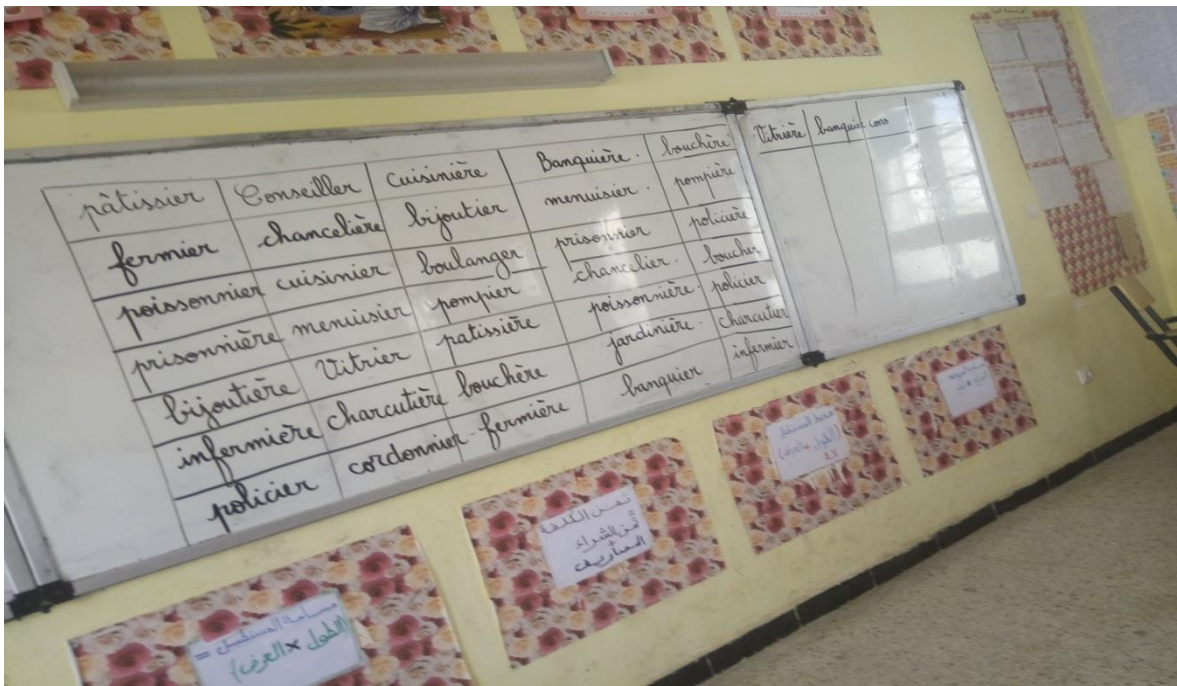 pâtissier Conseiller cuisinière Banquière . bouchère
fermier chancelière bijoutier menuisier . pompière
poissonnier cuisinier boulanger prisonnier policière
prisonnière menuisier pompier chancelier . boucher
bijoutière Vitrier patissière poissonnière. policier
infermière charcutière bouchère jardinière. charcutier
policier cordonnier fermière banquier infermier
Vitrière banquier cons
مساحة المستطيل =
(الطول × العرض)
ثمن الكلفة
=
ثمن الشراء
+
المصاريف
محيط المستطيل
(الطول + العرض)
2X